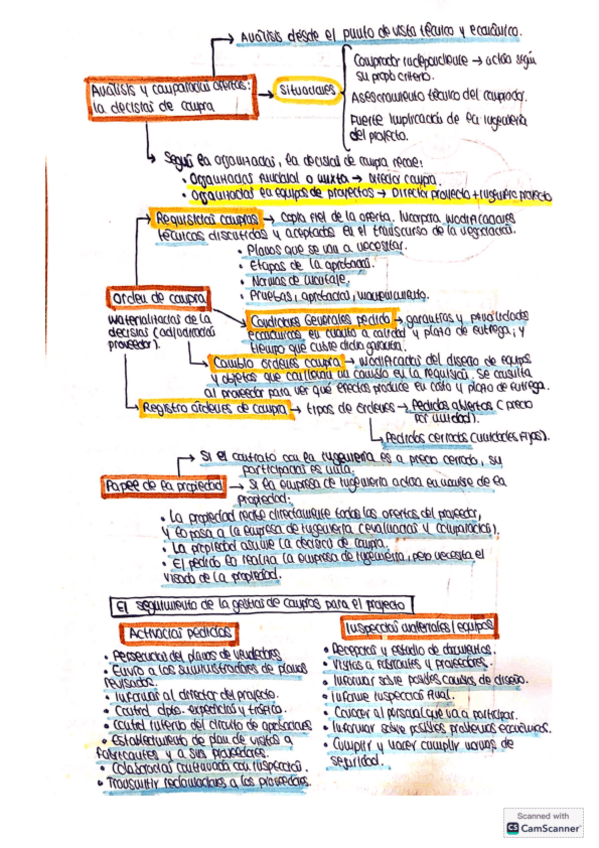 Análisis desde el punto de vista técnico y económico.
Análisis y comparación ofertas:
la decisión de compra
Situaciones
Comprador independiente → actúa según
su propio criterio.
Asesoramiento técnico del comprador.
Fuerte implicación de la ingeniería
del proyecto.
Según la organización, la decisión de compra recae:
• Organización funcional o mixta → Director compra.
• Organización en equipos de proyectos → Director proyecto + ingeniero proyecto
Requisición compras → Copia fiel de la oferta. Incorpora modificaciones
técnicas discutidas y aceptadas en el transcurso de la negociación.
• Planos que se van a necesitar.
• Etapas de la aprobación.
• Normas de embalaje.
• Pruebas, aprobación,
Orden de compra
Materialización de la
decisión (adjudicación
proveedor).
Condiciones Generales pedido → garantías y penalidades
económicas en cuanto a calidad y plazo de entrega, y
tiempo que cubre dicha garantía.
Cambio órdenes compra → modificación del diseño de equipos
y objetos que conllevan un cambio en la requisición. Se consulta
al proveedor para ver qué efectos produce en costo y plazo de entrega.
Registro órdenes de compra → tipos de órdenes → Pedidos abiertos (precio
por unidad).
Pedidos cerrados (cantidades fijas).
Si el contrato con la ingeniería es a precio cerrado, su
participación es nula.
Papel de la propiedad → Si la empresa de ingeniería actúa en nombre de la
propiedad:
• La propiedad recibe directamente todas las ofertas del proveedor,
y lo pasa a la empresa de ingeniería (evaluación y comparación).
• La propiedad asume la decisión de compra.
• El pedido lo realiza la empresa de ingeniería, pero necesita el
visado de la propiedad.
El seguimiento de la gestión de compras para el proyecto
Activación pedidos
• Persecución del planos de vendedores
• Envío a los suministradores de planos
revisados.
• Informar al director del proyecto.
• Control dpto. expedición y tráfico.
• Control interno del circuito de aprobaciones
• Establecimiento de plan de visitas a
fabricantes y a sus proveedores.
• Colaboración continuada con inspección.
• Transmitir reclamaciones a los proveedores.
Inspección materiales/equipos
• Recepción y estudio de documentos.
• Visitas a fabricantes y proveedores.
• Informar sobre posibles cambios de diseño.
• Informe inspección final.
• Conocer al personal que va a participar.
• Informar sobre posibles problemas económicos.
• Cumplir y hacer cumplir normas de
seguridad.
Scanned with
CS CamScanner